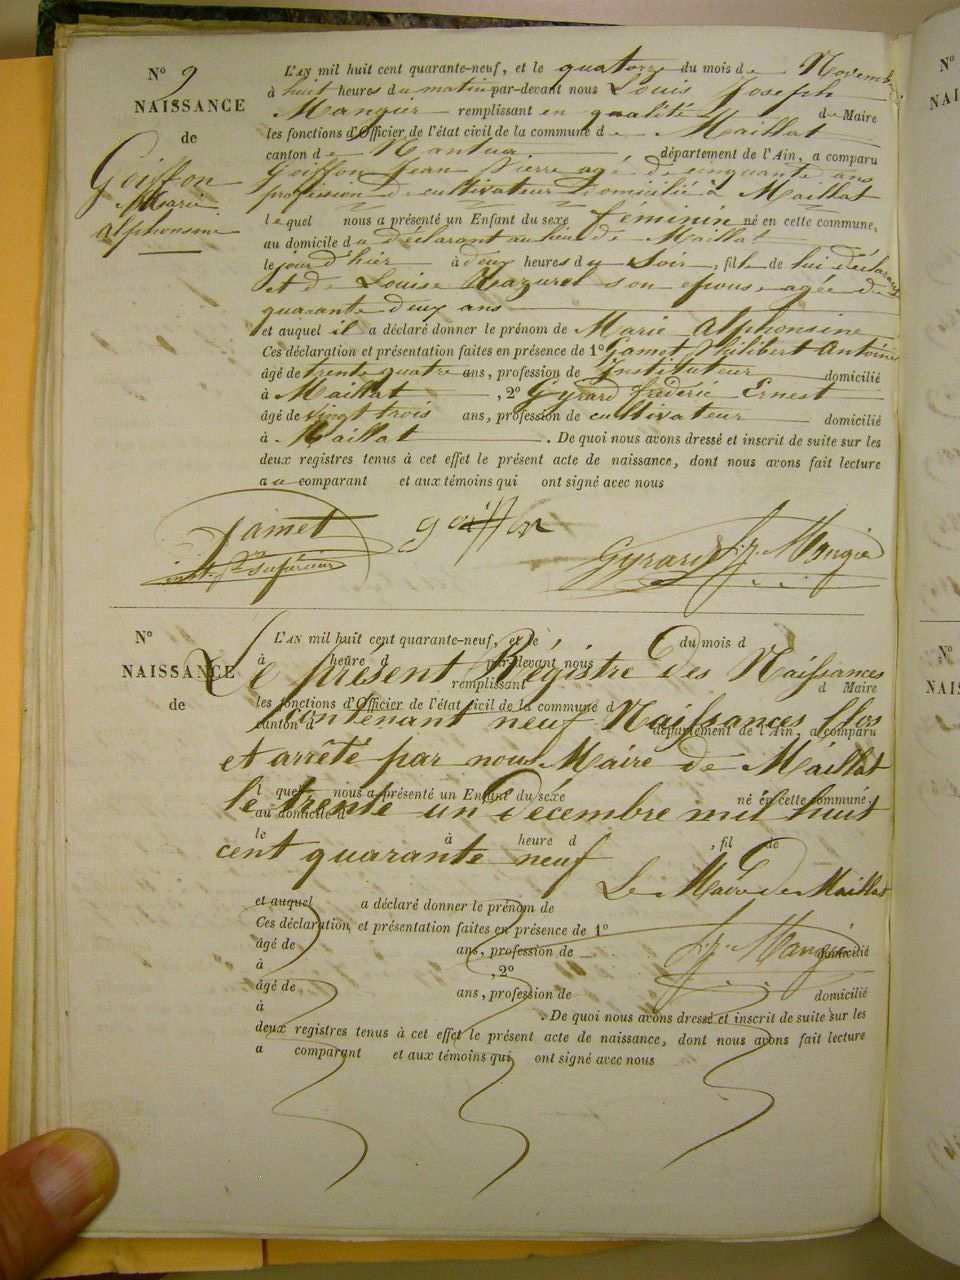 N° 9
NAISSANCE
de
Goiffon
Marie
alphonsine
L'AN mil huit cent quarante-neuf, et le quatorze du mois de Novembre
à huit heures du matin par-devant nous Louis Joseph
Mangier remplissant en qualité de Maire
les fonctions d'Officier de l'état civil de la commune de Maillat
canton de Nantua département de l'Ain, a comparu
Goiffon Jean Pierre agé de cinquante ans
profession de cultivateur Domicilié à Maillat
lequel nous a présenté un Enfant du sexe féminin né en cette commune,
au domicile du déclarant au lieu de Maillat
le jour d'hier à deux heures du soir, fille de lui déclarant
et de Louise son epouse agée de
quarante deux ans
et auquel il a déclaré donner le prénom de Marie alphonsine
Ces déclaration et présentation faites en présence de 1° Gamet Philibert Antoine
âgé de trente quatre ans, profession de Instituteur domicilié
à Maillat, 2° Gyrard frédéric Ernest
âgé de vingt trois ans, profession de cultivateur domicilié
à Maillat. De quoi nous avons dressé et inscrit de suite sur les
deux registres tenus à cet effet le présent acte de naissance, dont nous avons fait lecture
au comparant et aux témoins qui ont signé avec nous
Gamet goiffon Gyrard Mangier
supérieur
N°
NAISSANCE
de
L'AN mil huit cent quarante-neuf, et le du mois d
à heure d par-devant nous
Le présent Régistre des Naissances
remplissant d Maire
les fonctions d'Officier de l'état civil de la commune d
contenant neuf Naissances Clos
canton d département de l'Ain, a comparu
et arrêté par nous Maire de Maillat
l quel nous a présenté un Enfant du sexe né en cette commune,
le trente un Décembre mil huit
au domicile d
le à heure d , fil de
cent quarante neuf
Le Maire de Maillat
et auquel a déclaré donner le prénom de
Ces déclaration et présentation faites en présence de 1°
Mangier
âgé de ans, profession de domicilié
à , 2°
âgé de ans, profession de domicilié
à . De quoi nous avons dressé et inscrit de suite sur les
deux registres tenus à cet effet le présent acte de naissance, dont nous avons fait lecture
a comparant et aux témoins qui ont signé avec nous
N°
N°